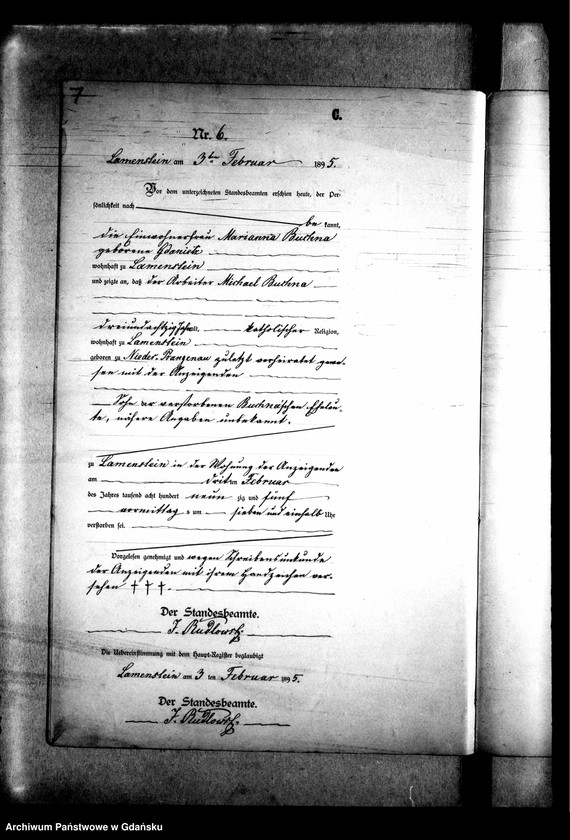 7
C.
Nr. 6.
Lamenstein am 3ten Februar 1895.
Vor dem unterzeichneten Standesbeamten erschien heute, der Per-
sönlichkeit nach
be kannt,
die Einwohnerfrau Marianna Buchna
geborene
wohnhaft zu Lamenstein
und zeigte an, daß der Arbeiter Michael Buchna
dreiundachtzig Jahre alt, katholischer Religion,
wohnhaft zu Lamenstein
geboren zu Nieder-Prangenau zuletzt verheiratet gewe-
sen mit der Anzeigenden
Sohn der verstorbenen Buchna'schen Eheleu-
te, nähere Angaben unbekannt.
zu Lamenstein in der Wohnung der Anzeigenden
am dritten Februar
des Jahres tausend acht hundert neun zig und fünf
vormittags um sieben und einhalb Uhr
verstorben sei.
Vorgelesen genehmigt und wegen Schreibensunkunde
der Anzeigenden mit ihrem Handzeichen ver-
sehen † † †.
Der Standesbeamte.
J.
Die Uebereinstimmung mit dem Haupt-Register beglaubigt
Lamenstein am 3 ten Februar 1895.
Der Standesbeamte.
J.
Archiwum Państwowe w Gdańsku